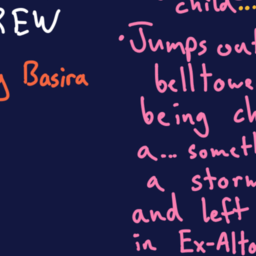 REW
g Basira
child...
• Jumps out
belltowe
being ch
a... someth
a storm
and left
in Ex-Alto